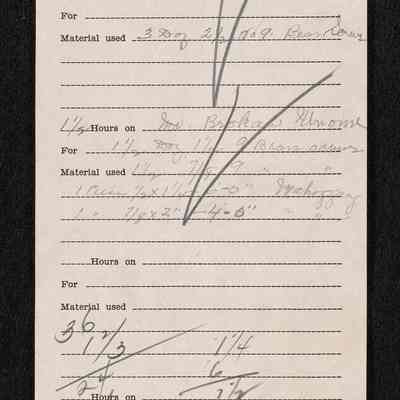 For
Material used 3 Doz 2½ No 9 Brass Screws
1½ Hours on Mr. Brokaw
For 1½ Doz 1½ 9 Brass screws
Material used 1½ " 7/8 9 " "
1 Piece ½ x 1½ -0" Mahogany
1 " 7/8 x 2" -4-0" " "
Hours on
For
Material used
36
1/3 1/4
6
24 1½
Hours on